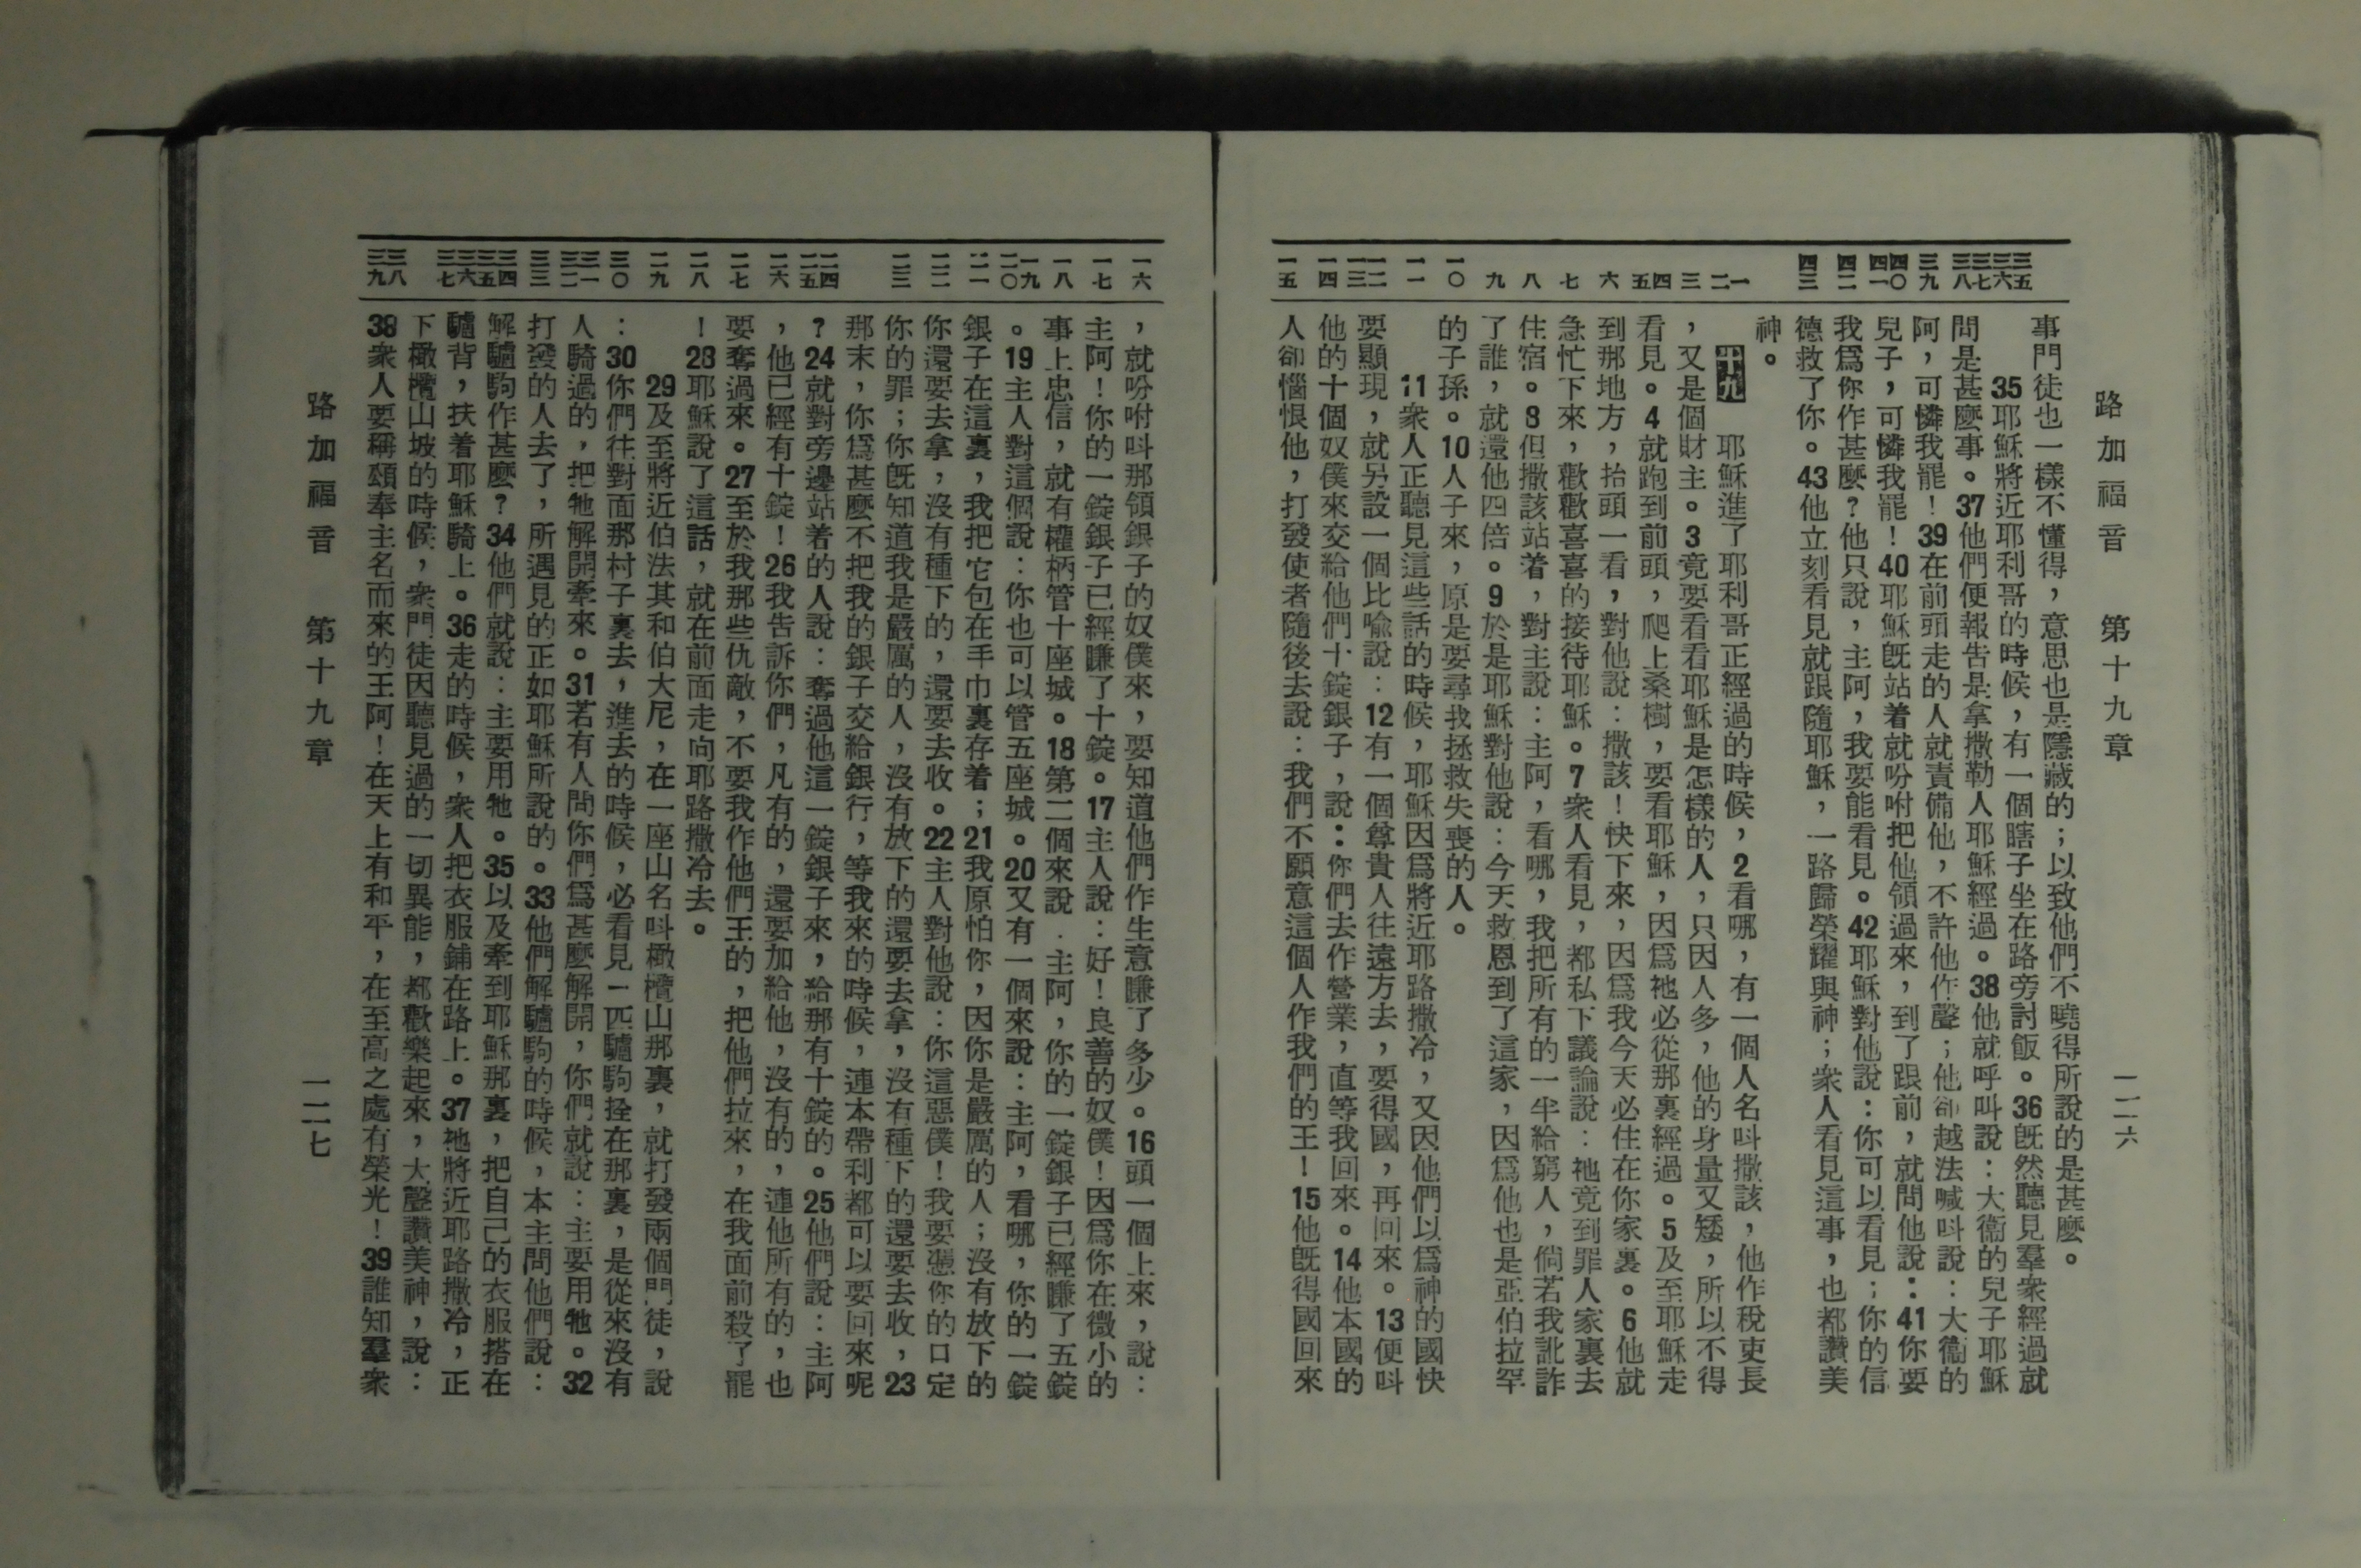 路加福音 第十九章 一二六
三五 三六 三七 三八 三九 四〇 四一 四二 四三 一 二 三 四 五 六 七 八 九 一〇 一一 一二 一三 一四 一五
事門徒也一樣不懂得，意思也是隱藏的；以致他們不曉得所說的是甚麼。
35耶穌將近耶利哥的時候，有一個瞎子坐在路旁討飯。36旣然聽見羣衆經過就
問是甚麼事。37他們便報告是拿撒勒人耶穌經過。38他就呼叫說：大衞的兒子耶穌
阿，可憐我罷！39在前頭走的人就責備他，不許他作聲；他卻越法喊呌說：大衞的
兒子，可憐我罷！40耶穌旣站着就吩咐把他領過來，到了跟前，就問他說：41你要
我爲你作甚麼？他只說，主阿，我要能看見。42耶穌對他說：你可以看見；你的信
德救了你。43他立刻看見就跟隨耶穌，一路歸榮耀與神；衆人看見這事，也都讚美
神。
十九 耶穌進了耶利哥正經過的時候，2看哪，有一個人名呌撒該，他作稅吏長
，又是個財主。3竟要看看耶穌是怎樣的人，只因人多，他的身量又矮，所以不得
看見。4就跑到前頭，爬上桑樹，要看耶穌，因爲祂必從那裏經過。5及至耶穌走
到那地方，抬頭一看，對他說：撒該！快下來，因爲我今天必住在你家裏。6他就
急忙下來，歡歡喜喜的接待耶穌。7衆人看見，都私下議論說：祂竟到罪人家裏去
住宿。8但撒該站着，對主說：主阿，看哪，我把所有的一半給窮人，倘若我訛詐
了誰，就還他四倍。9於是耶穌對他說：今天救恩到了這家，因爲他也是亞伯拉罕
的子孫。10人子來，原是要尋找拯救失喪的人。
11衆人正聽見這些話的時候，耶穌因爲將近耶路撒冷，又因他們以爲神的國快
要顯現，就另設一個比喩說：12有一個尊貴人往遠方去，要得國，再回來。13便呌
他的十個奴僕來交給他們十錠銀子，說：你們去作營業，直等我回來。14他本國的
人卻惱恨他，打發使者隨後去說：我們不願意這個人作我們的王！15他旣得國回來
一六 一七 一八 一九 二〇 二一 二二 二三 二四 二五 二六 二七 二八 二九 三〇 三一 三二 三三 三四 三五 三六 三七 三八 三九
，就吩咐呌那領銀子的奴僕來，要知道他們作生意賺了多少。16頭一個上來，說：
主阿！你的一錠銀子已經賺了十錠。17主人說：好！良善的奴僕！因爲你在微小的
事上忠信，就有權柄管十座城。18第二個來說：主阿，你的一錠銀子已經賺了五錠
。19主人對這個說：你也可以管五座城。20又有一個來說：主阿，看哪，你的一錠
銀子在這裏，我把它包在手巾裏存着；21我原怕你，因你是嚴厲的人；沒有放下的
你還要去拿，沒有種下的，還要去收。22主人對他說：你這惡僕！我要憑你的口定
你的罪；你旣知道我是嚴厲的人，沒有放下的還要去拿，沒有種下的還要去收，23
那末，你爲甚麼不把我的銀子交給銀行，等我來的時候，連本帶利都可以要回來呢
？24就對旁邊站着的人說：奪過他這一錠銀子來，給那有十錠的。25他們說：主阿
，他已經有十錠！26我告訴你們，凡有的，還要加給他，沒有的，連他所有的，也
要奪過來。27至於我那些仇敵，不要我作他們王的，把他們拉來，在我面前殺了罷
！28耶穌說了這話，就在前面走向耶路撒冷去。
29及至將近伯法其和伯大尼，在一座山名呌橄欖山那裏，就打發兩個門徒，說
：30你們往對面那村子裏去，進去的時候，必看見一匹驢駒拴在那裏，是從來沒有
人騎過的，把牠解開牽來。31若有人問你們爲甚麼解開，你們就說：主要用牠。32
打發的人去了，所遇見的正如耶穌所說的。33他們解驢駒的時候，本主問他們說：
解驢駒作甚麼？34他們就說：主要用牠。35以及牽到耶穌那裏，把自己的衣服搭在
驢背，扶着耶穌騎上。36走的時候，衆人把衣服鋪在路上。37祂將近耶路撒冷，正
下橄欖山坡的時候，衆門徒因聽見過的一切異能，都歡樂起來，大聲讚美神，說：
38衆人要稱頌奉主名而來的王阿！在天上有和平，在至高之處有榮光！39誰知羣衆
路加福音 第十九章 一二七